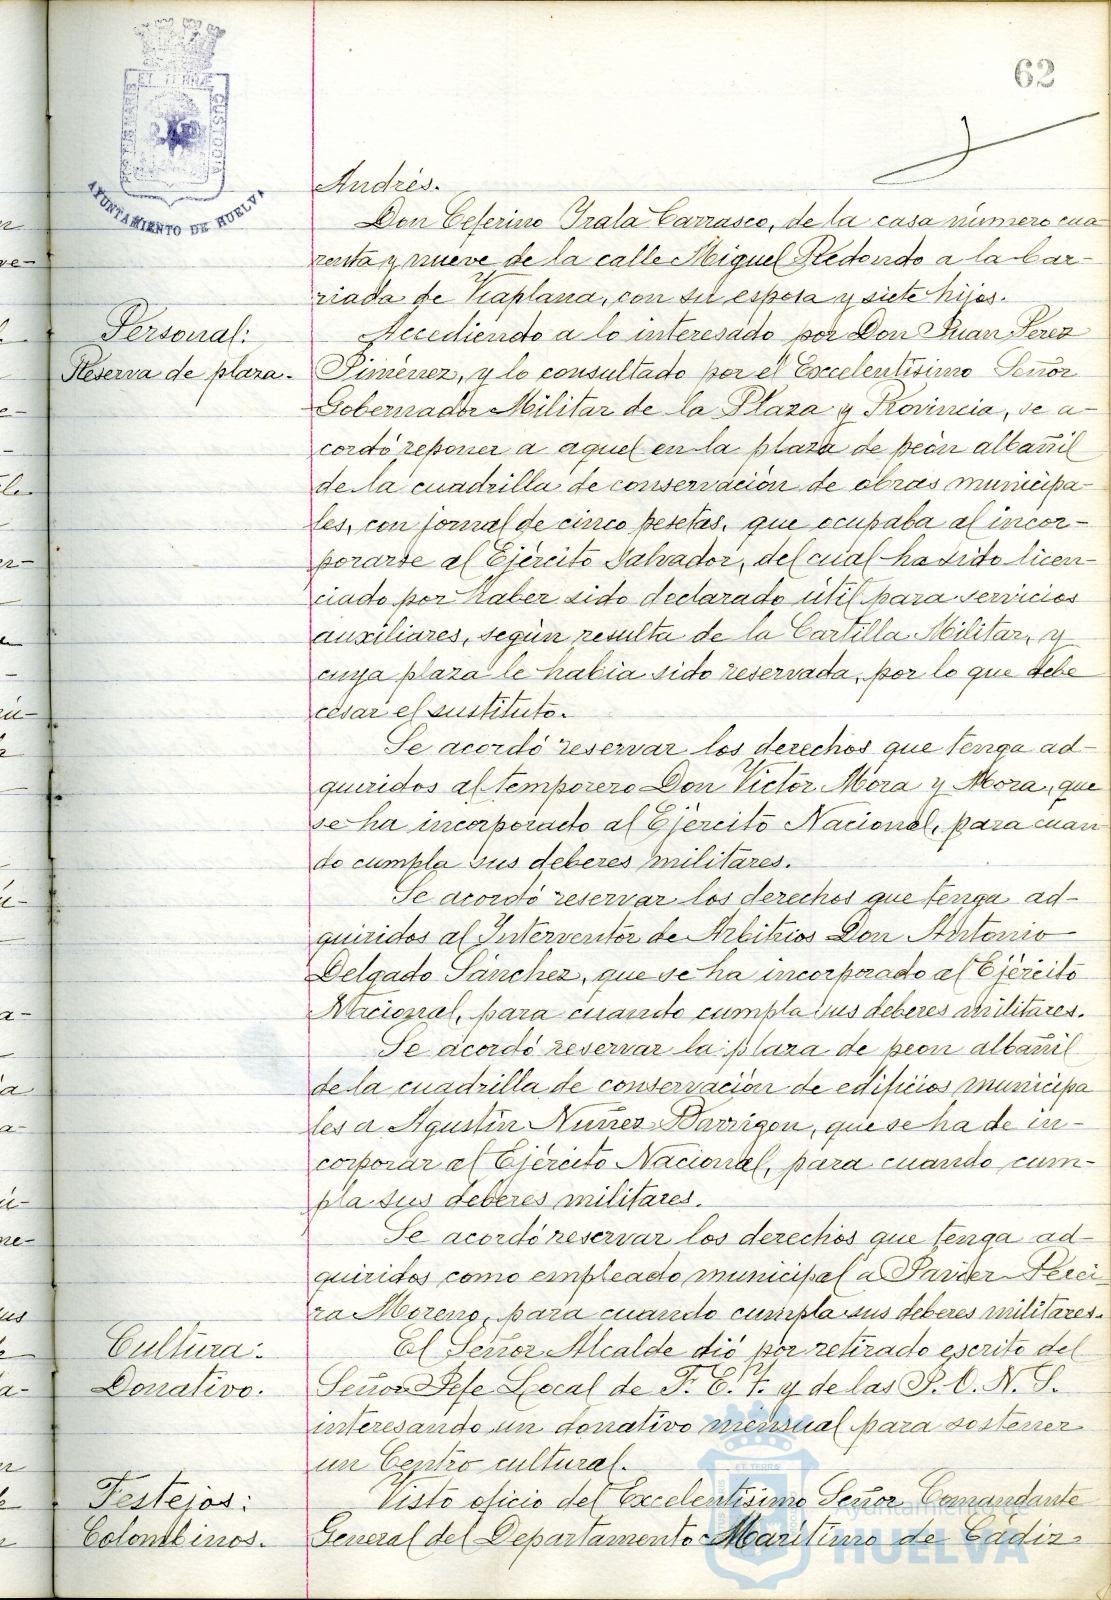 62
ET TERRÆ
CUSTODIA
AYUNTAMIENTO DE HUELVA
Andrés.
Don Ceferino Yrala Carrasco, de la casa número cua-
renta y nueve de la calle Miguel Redondo a la bar-
riada de Viaplana, con su esposa y siete hijos.
Personal:
Reserva de plaza.
Accediendo a lo interesado por Don Juan Perez
Jiménez, y lo consultado por el Excelentísimo Señor
Gobernador Militar de la Plaza y Provincia, se a-
cordó reponer a aquel en la plaza de peón albañil
de la cuadrilla de conservación de obras municipa-
les, con jornal de cinco pesetas, que ocupaba al incor-
porarse al Ejército Salvador, del cual ha sido licen-
ciado por haber sido declarado útil para servicios
auxiliares, según resulta de la Cartilla Militar, y
cuya plaza le habia sido reservada, por lo que debe
cesar el sustituto.
Se acordó reservar los derechos que tenga ad-
queridos al temporero Don Victor Mora y Mora, que
se ha incorporado al Ejército Nacional, para cuan
do cumpla sus deberes militares.
Se acordó reservar los derechos que tenga ad-
quiridos al Interventor de Arbitrios Don Antonio
Delgado Sánchez, que se ha incorporado al Ejército
Nacional, para cuando cumpla sus deberes militares.
Se acordó reservar la plaza de peon albañil
de la cuadrilla de conservación de edificios municipa
les a Agustín Nuñez Barrigon, que se ha de in-
corporar al Ejército Nacional, para cuando cum-
pla sus deberes militares.
Se acordó reservar los derechos que tenga ad-
quiridos como empleado municipal a Javier Perei-
ra Moreno, para cuando cumpla sus deberes militares.
Cultura:
Donativo.
El Señor Alcalde dió por retirado escrito del
Señor Jefe Local de F. E. T. y de las J. O. N. S.
interesando un donativo mensual para sostener
un Centro cultural.
Festejos:
Colombinos.
Visto oficio del Excelentísimo Señor Comandante
General del Departamento Marítimo de Cádiz
Ayuntamiento de
HUELVA